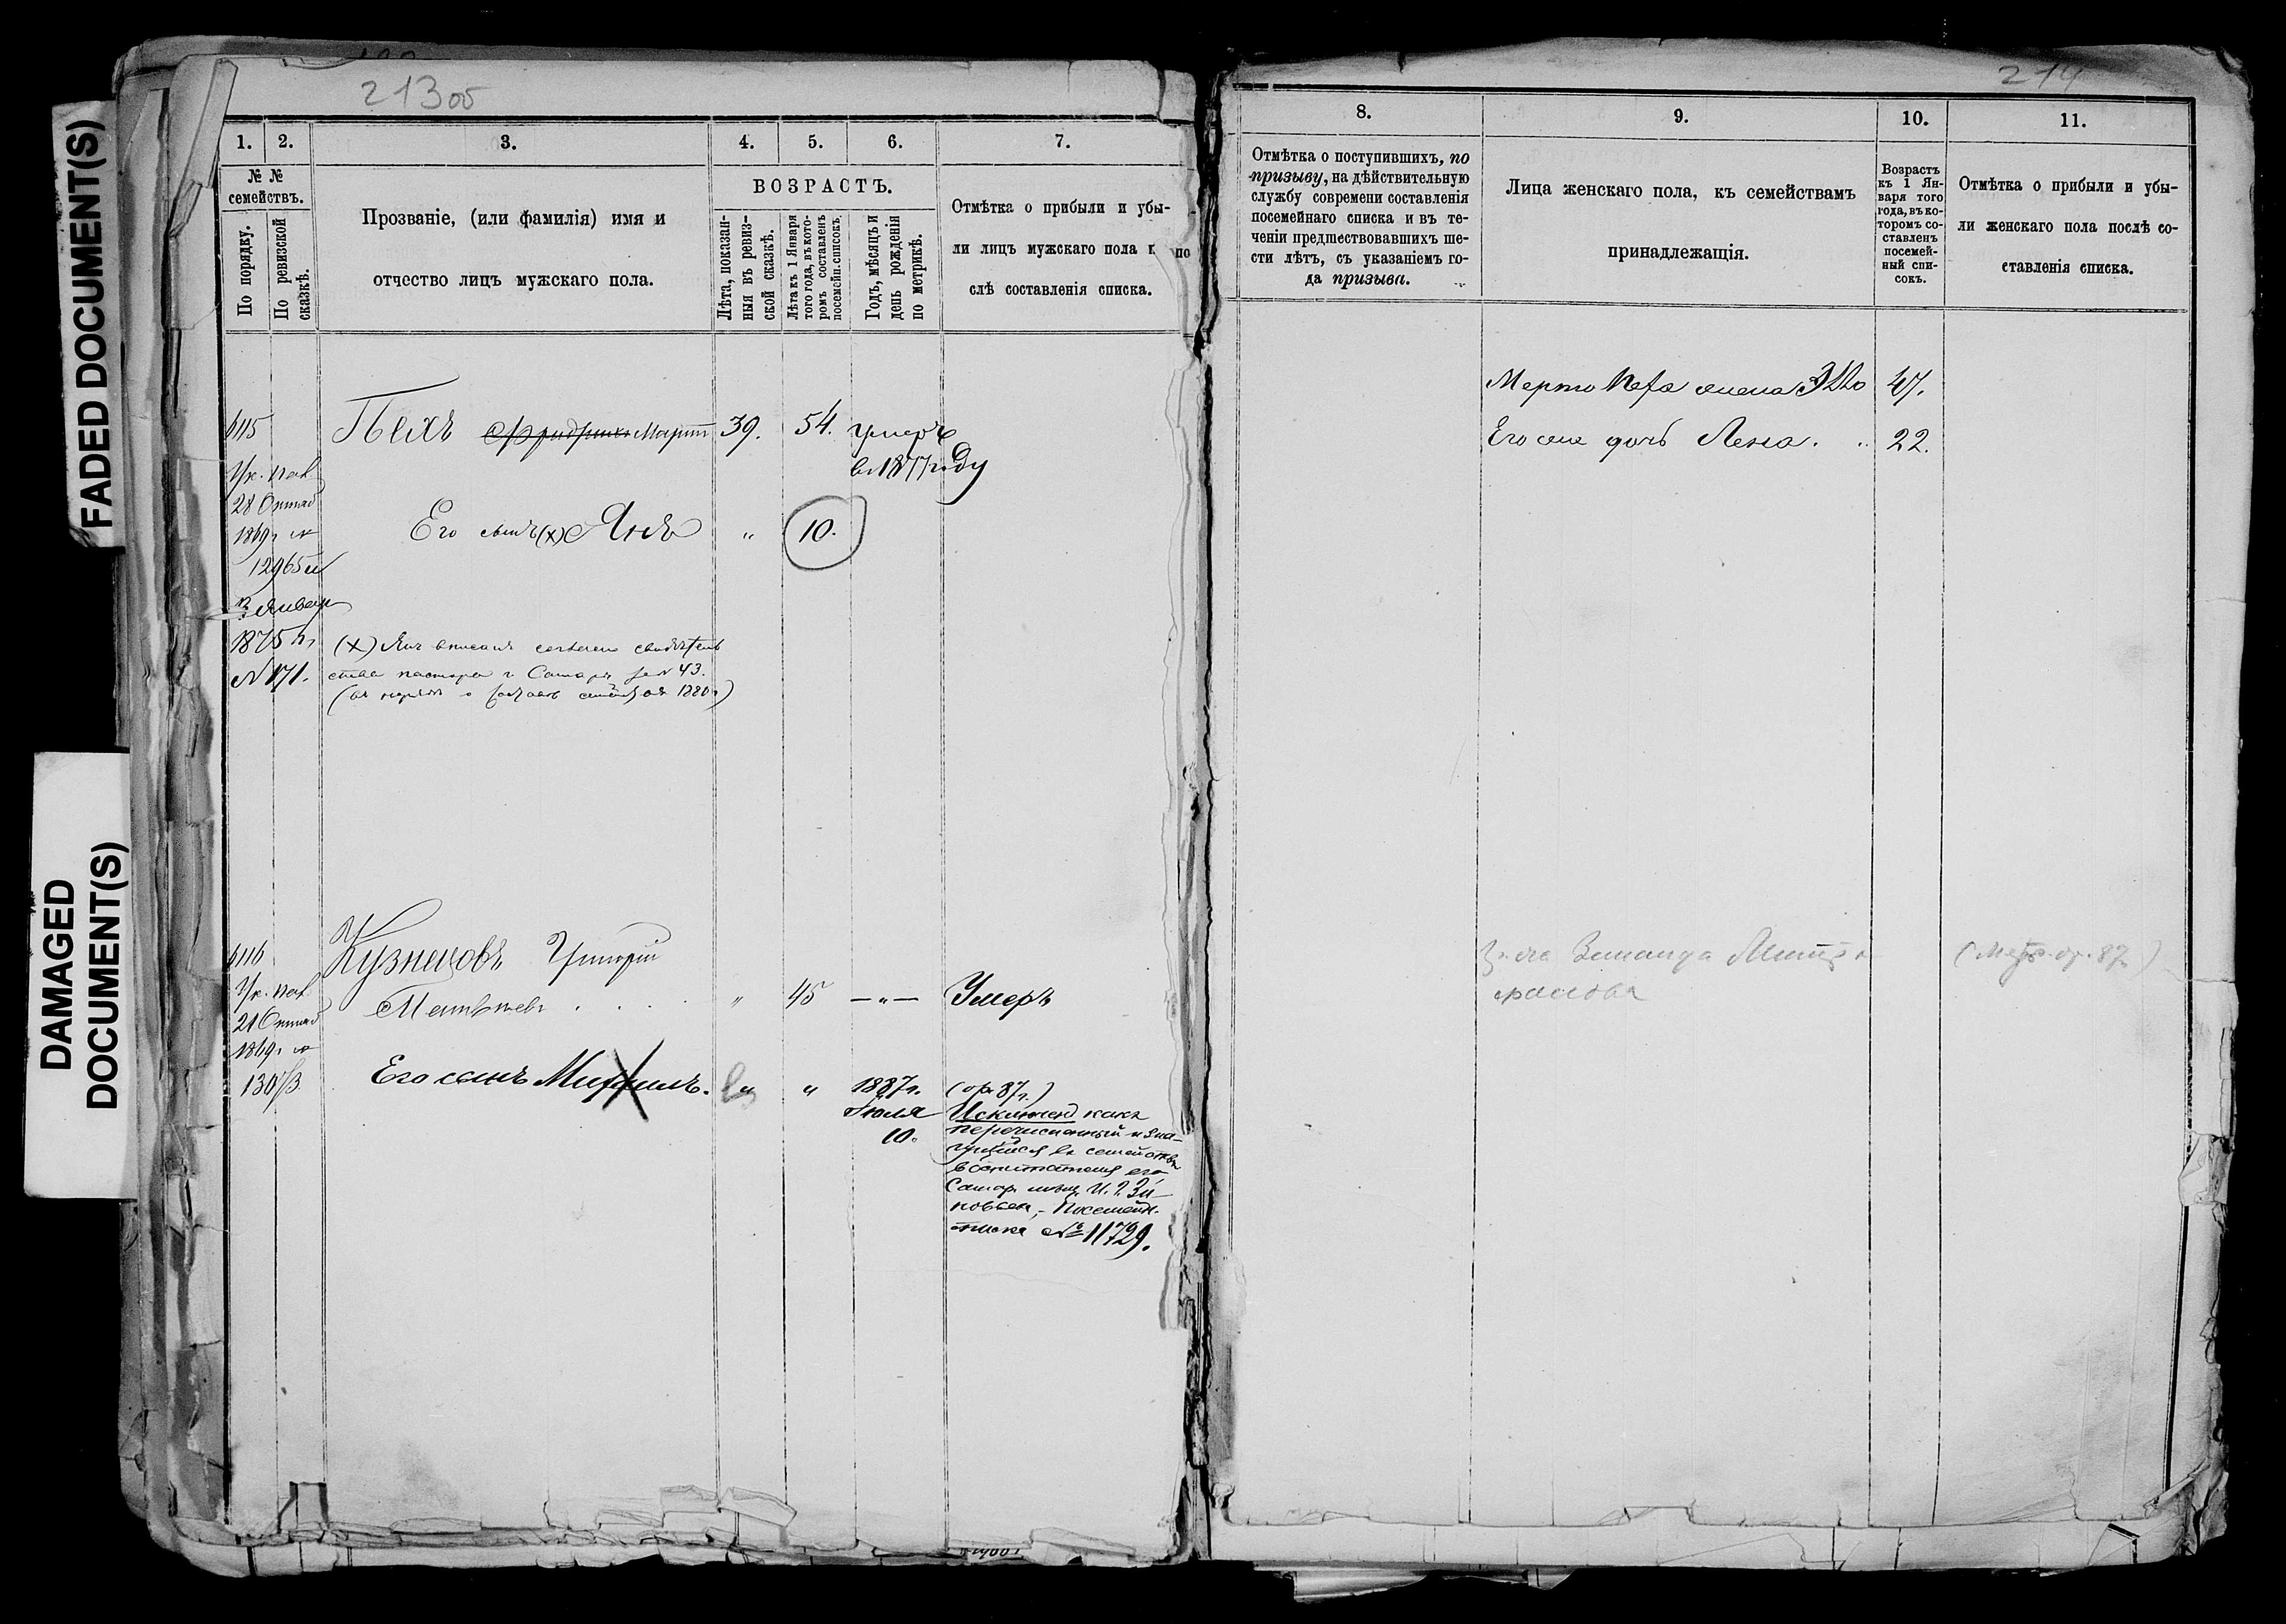 FADED DOCUMENT(S)
DAMAGED
DOCUMENT(S)
213 об
1. 2. 3. 4. 5. 6. 7.
№ №
семействъ.
По порядку.
По ревизской
сказкѣ.
Прозваніе, (или фамилія) имя и
отчество лицъ мужскаго пола.
ВОЗРАСТЪ.
Лѣта, показан-
ныя въ ревиз-
ской сказкѣ.
Лѣта къ 1 Января
того года, въ кото-
ромъ составленъ
посемейн. списокъ.
Годъ, мѣсяцъ и
день рожденія
по метрикѣ.
Отмѣтка о прибыли и убы-
ли лицъ мужскаго пола п по
слѣ составленія списка.
6115
Ук. пал.
28 Октяб
1869 г №
12965 и
Январ
1875 г
№ 171.
Пехъ Фридрихъ Мартт 39. 54. умеръ
в 1877 году
Его сынъ (х) Янъ „ 10.
(х) Янъ вписанъ свидѣтель
ства пастора г Самары за № 43.
1880 г)
6116
Ук. пал.
21 Октяб
1869 г №
Кузнецовъ Григорій
Матвѣевъ . . . „ 45 — „ — Умеръ
Его сынъ Михаилъ. „ „ 1887 г.
Іюля
10.
(ор 87 г.)
Исключенъ какъ
перечисленный и зна-
чущійся въ семействѣ
воспитателя его
Самар. мѣщ. И. Зи-
новьева, - Посемейн.
списка № 11729.
214
8. 9. 10. 11.
Отмѣтка о поступившихъ, по
призыву, на дѣйствительную
службу современи составленія
посемейнаго списка и въ те-
ченіи предшествовавшихъ ше-
сти лѣтъ, съ указаніемъ го-
да призыва.
Лица женскаго пола, къ семействамъ
принадлежащія.
Возрастъ
къ 1 Ян-
варя того
года, въ ко-
торомъ со-
ставленъ
посемей-
ный спи-
сокъ.
Отмѣтка о прибыли и убы-
ли женскаго пола послѣ со-
ставленія списка.
Марто жена 47.
Его дочь Лена. 22.
Зинаида Митро
фанова
(Метр. ор. 87)